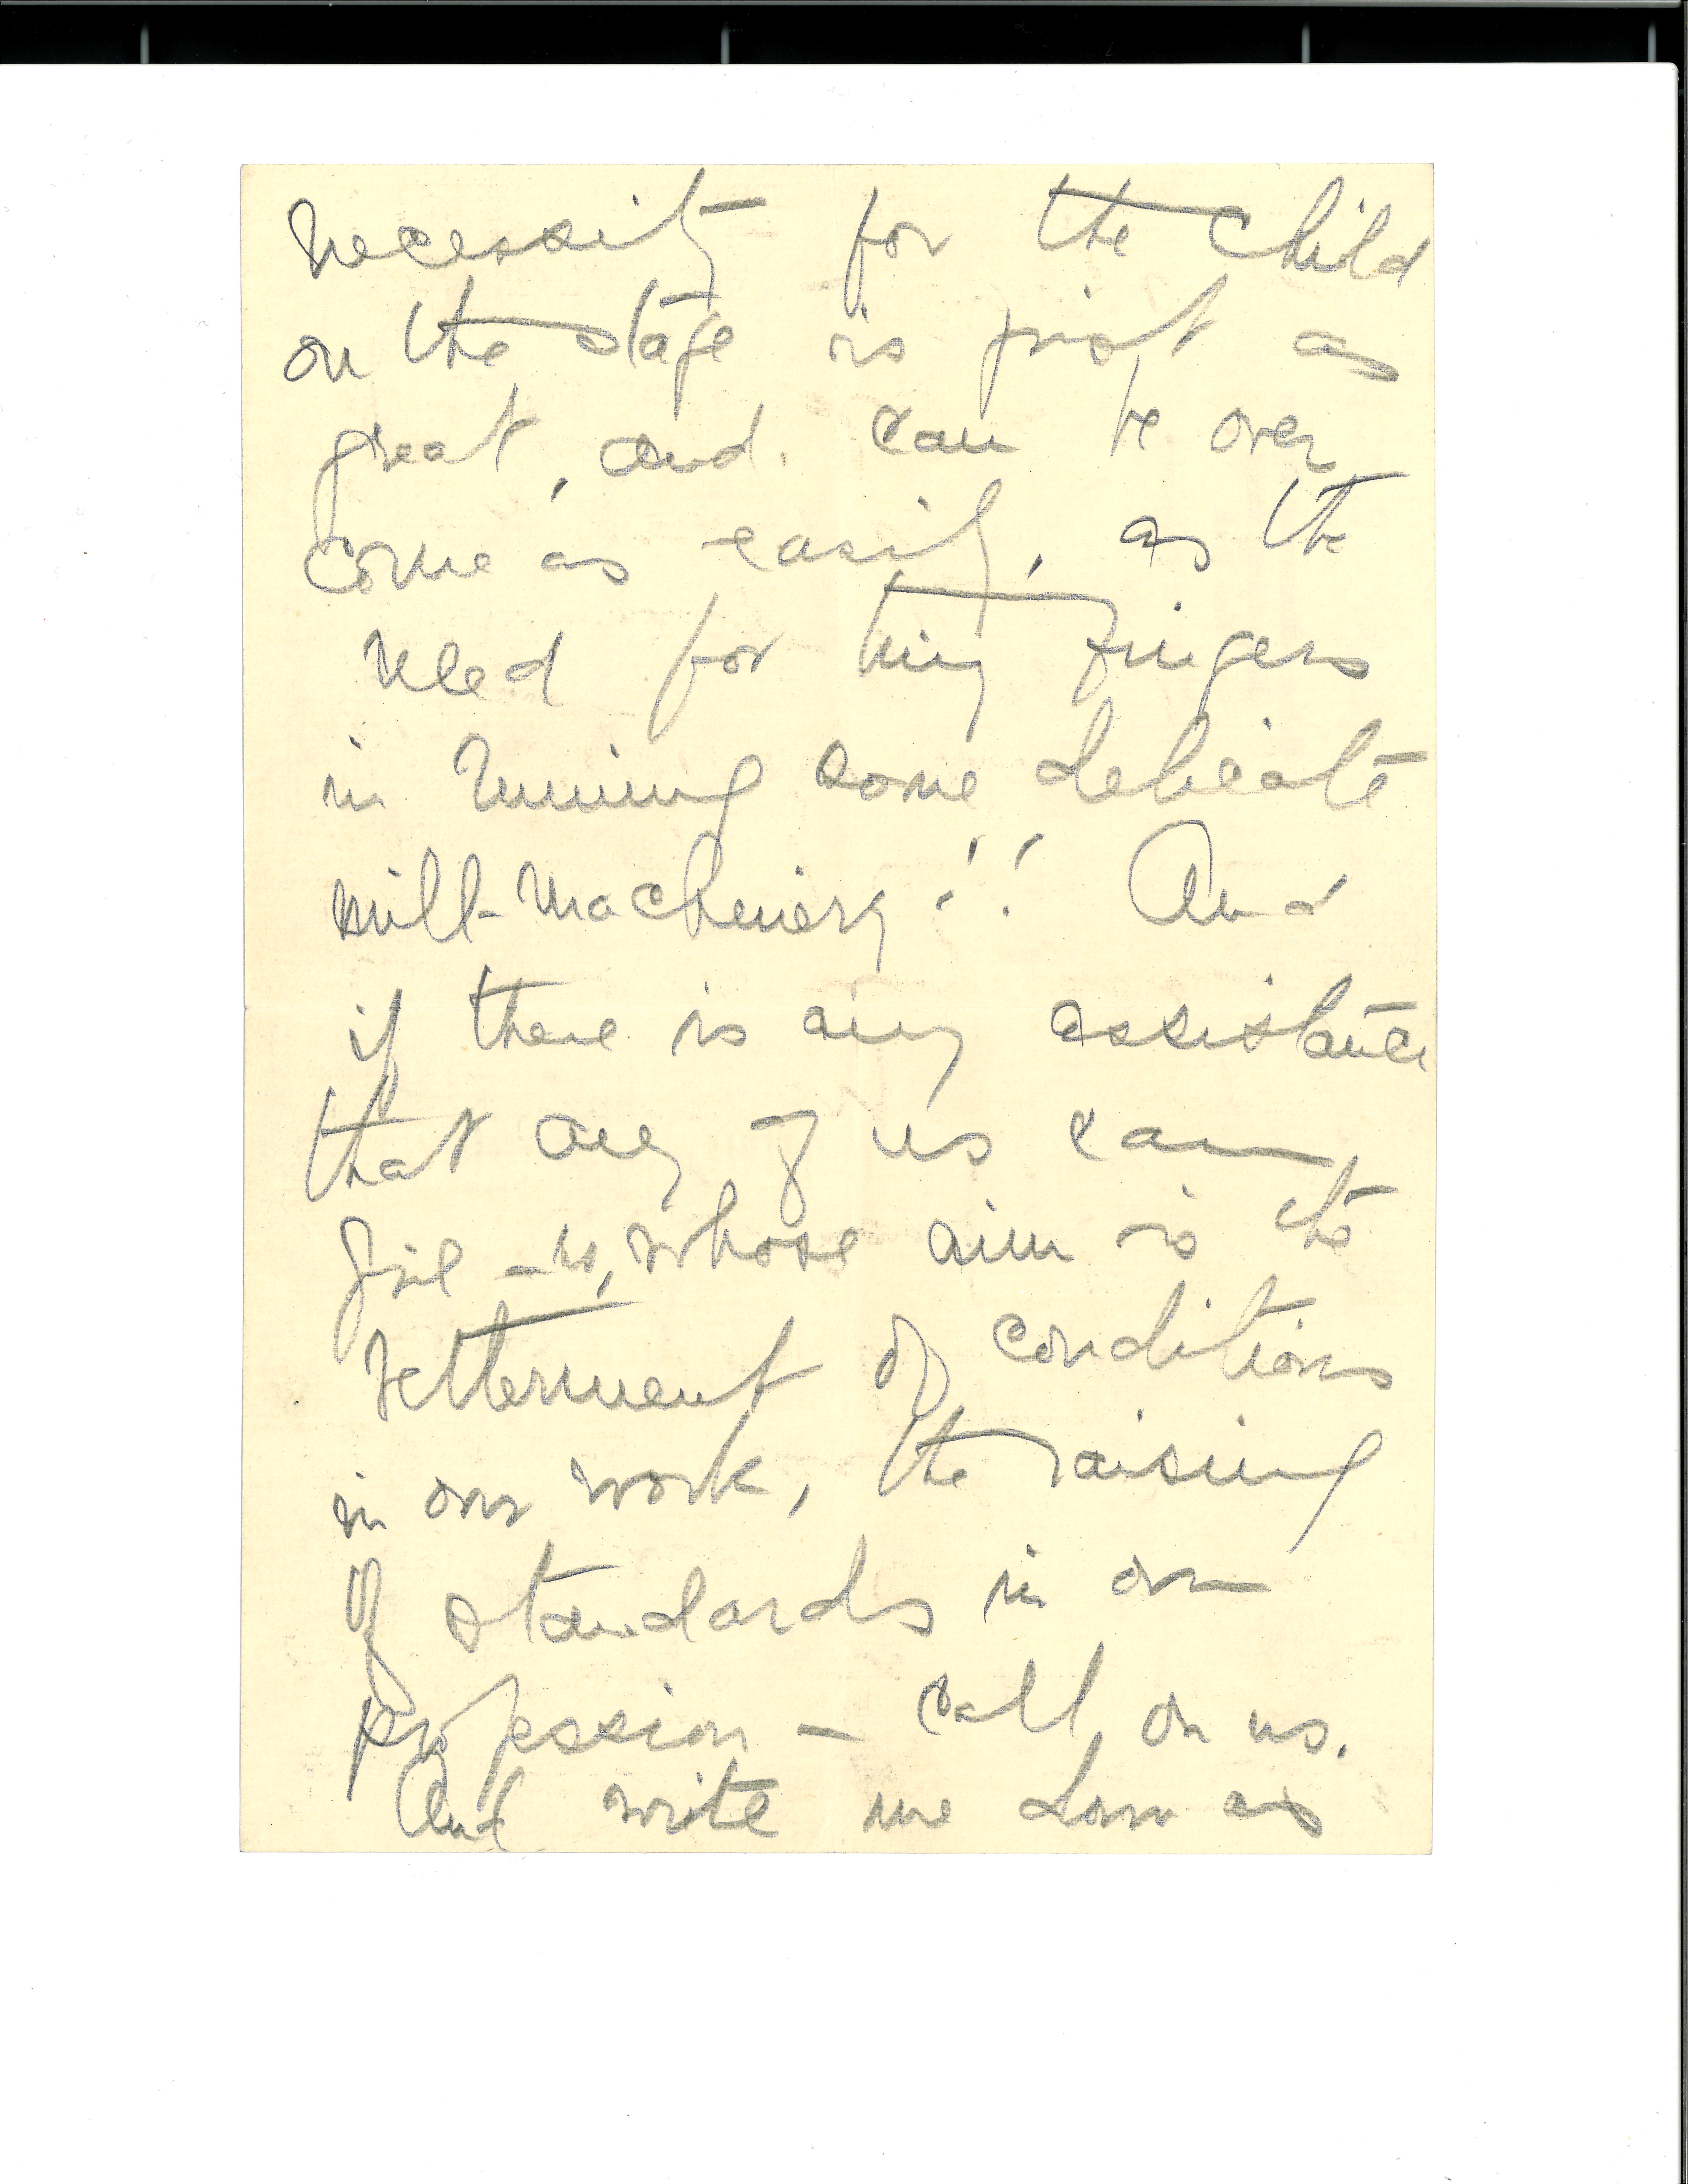 necessity for the child
on the stage is just as
great, and can be over
come as easily, as the
need for tiny fingers
in running some delicate
mill-machinery!! And
if there is any assistance
that any of us can
give - us, whose aim is the
betterment of conditions
in our work, the raising
of standards in our
profession - call on us.
And write me down as